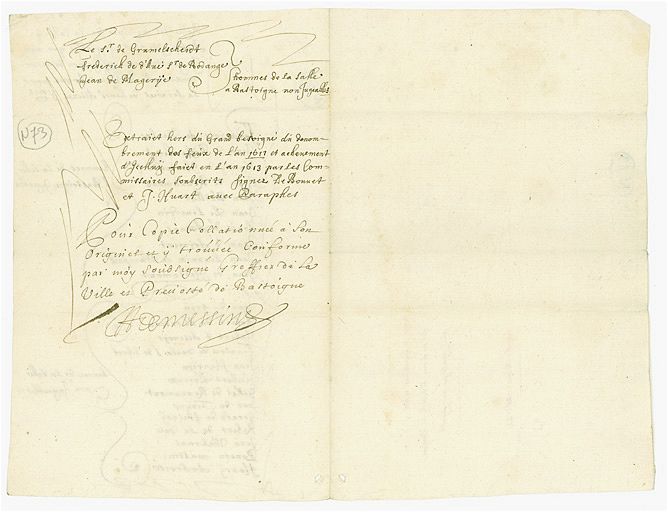 Le Sr de Grumelscheidt
frederick de d'Aué Sr de Bodange
Jean de Magerÿe
hommes de la salle
a Bastoigne non Jugeables
N73
Extraict hors du Grand besoigné du denom-
brement des feux de l'an 1611 et achevement
d'Jcelluÿ faict en l'an 1613 par les Com-
missaires soubscrits signez De Bonnet
et J. Huart avec Paraphes
Pour Copie Collationnée à son
Originel et ÿ trouvée Conforme
par moÿ Soubsigné Greffier de la
Ville et Prevosté de Bastoigne